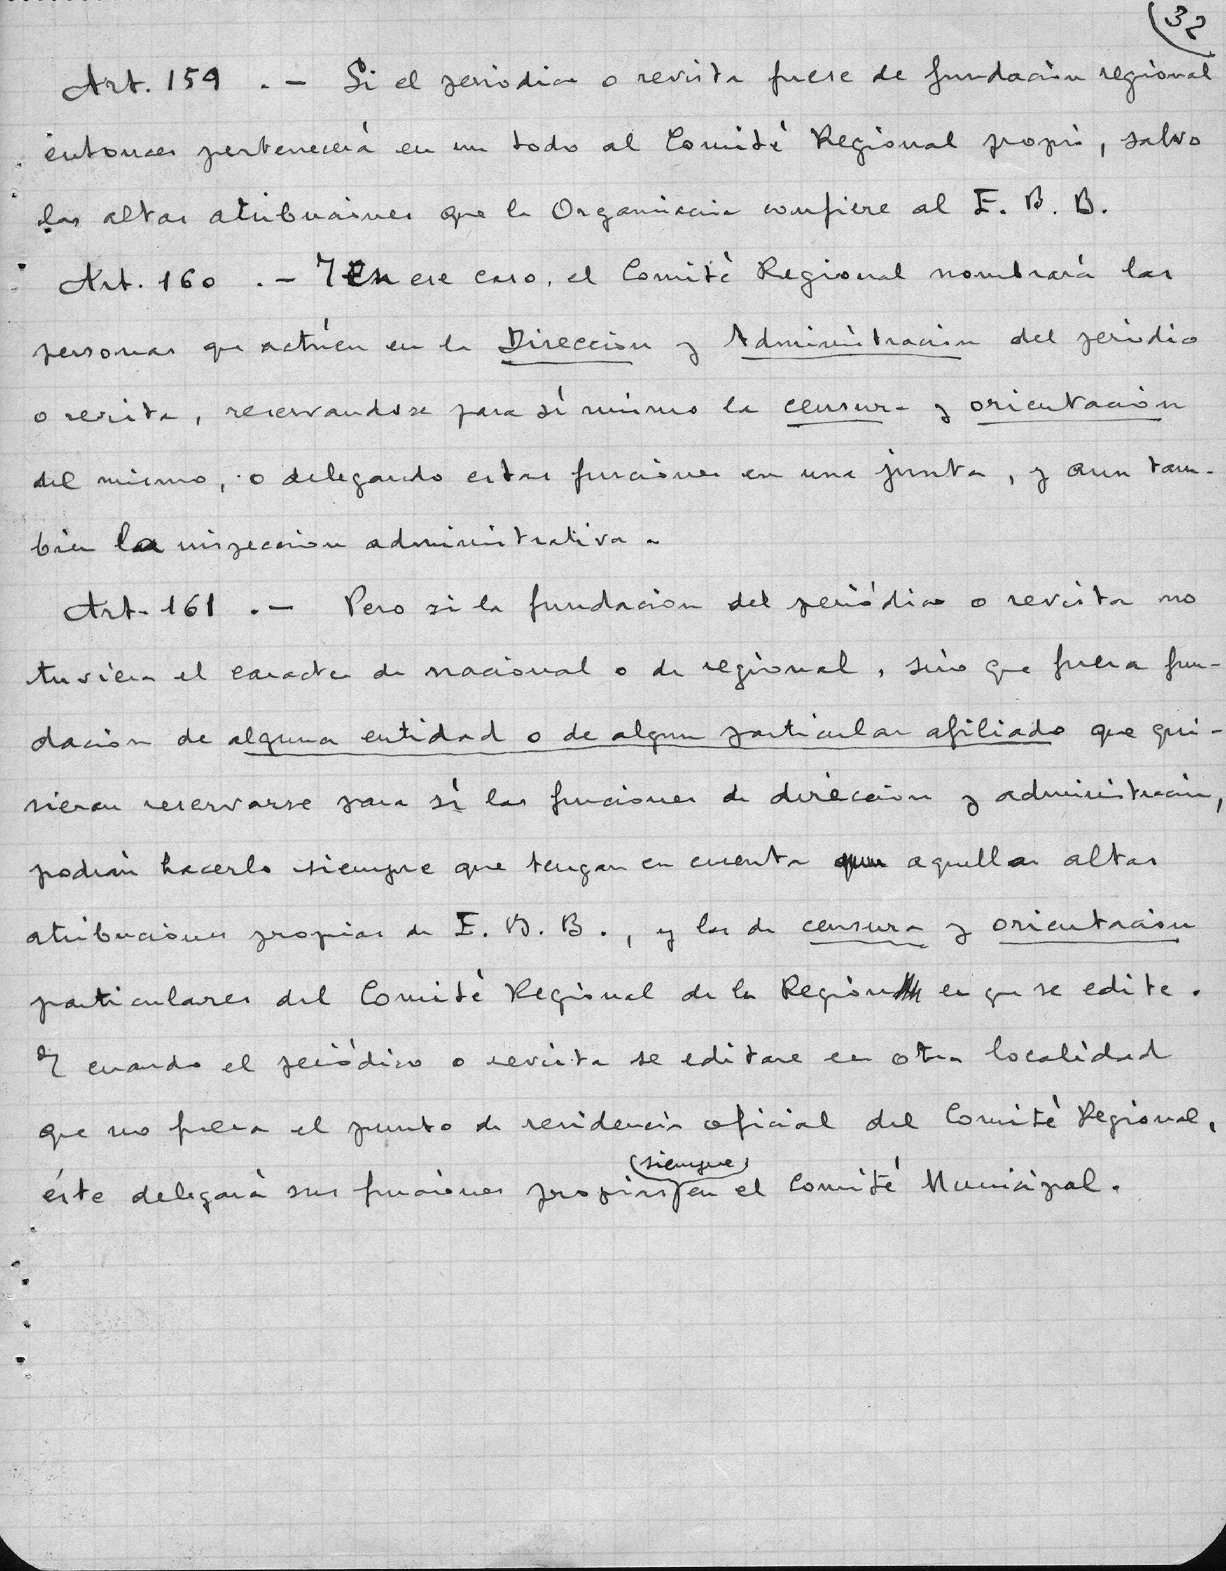 32
Art. 159 .- Si el periodico o revista fuese de fundación regional
entonces pertenecerá en un todo al Comité Regional propio, salvo
las altas atribuciones que la Organización confiere al E. B. B.
Art. 160 .- Y en ese caso, el Comité Regional nombrará las
personas que actúen en la Dirección y Administración del periódico
o revista, reservandose para sí mismo la censura y orientación
del mismo, o delegando estas funciones en una junta, y aun tam-
bién la inspección administrativa.
Art. 161 .- Pero si la fundación del periódico o revista no
tuviera el caracter de nacional o de regional, sino que fuera fun-
dación de alguna entidad o de algun particular afiliado que qui-
sieran reservarse para sí las funciones de dirección y administración,
podrán hacerlo siempre que tengan en cuenta aquellas altas
atribuciones propias de E. B. B., y las de censura y orientación
particulares del Comité Regional de la Región en que se edite.
Y cuando el periódico o revista se editare en otra localidad
que no fuera el punto de residencia oficial del Comité Regional,
(siempre)
éste delegará sus funciones propias en el Comité Municipal.